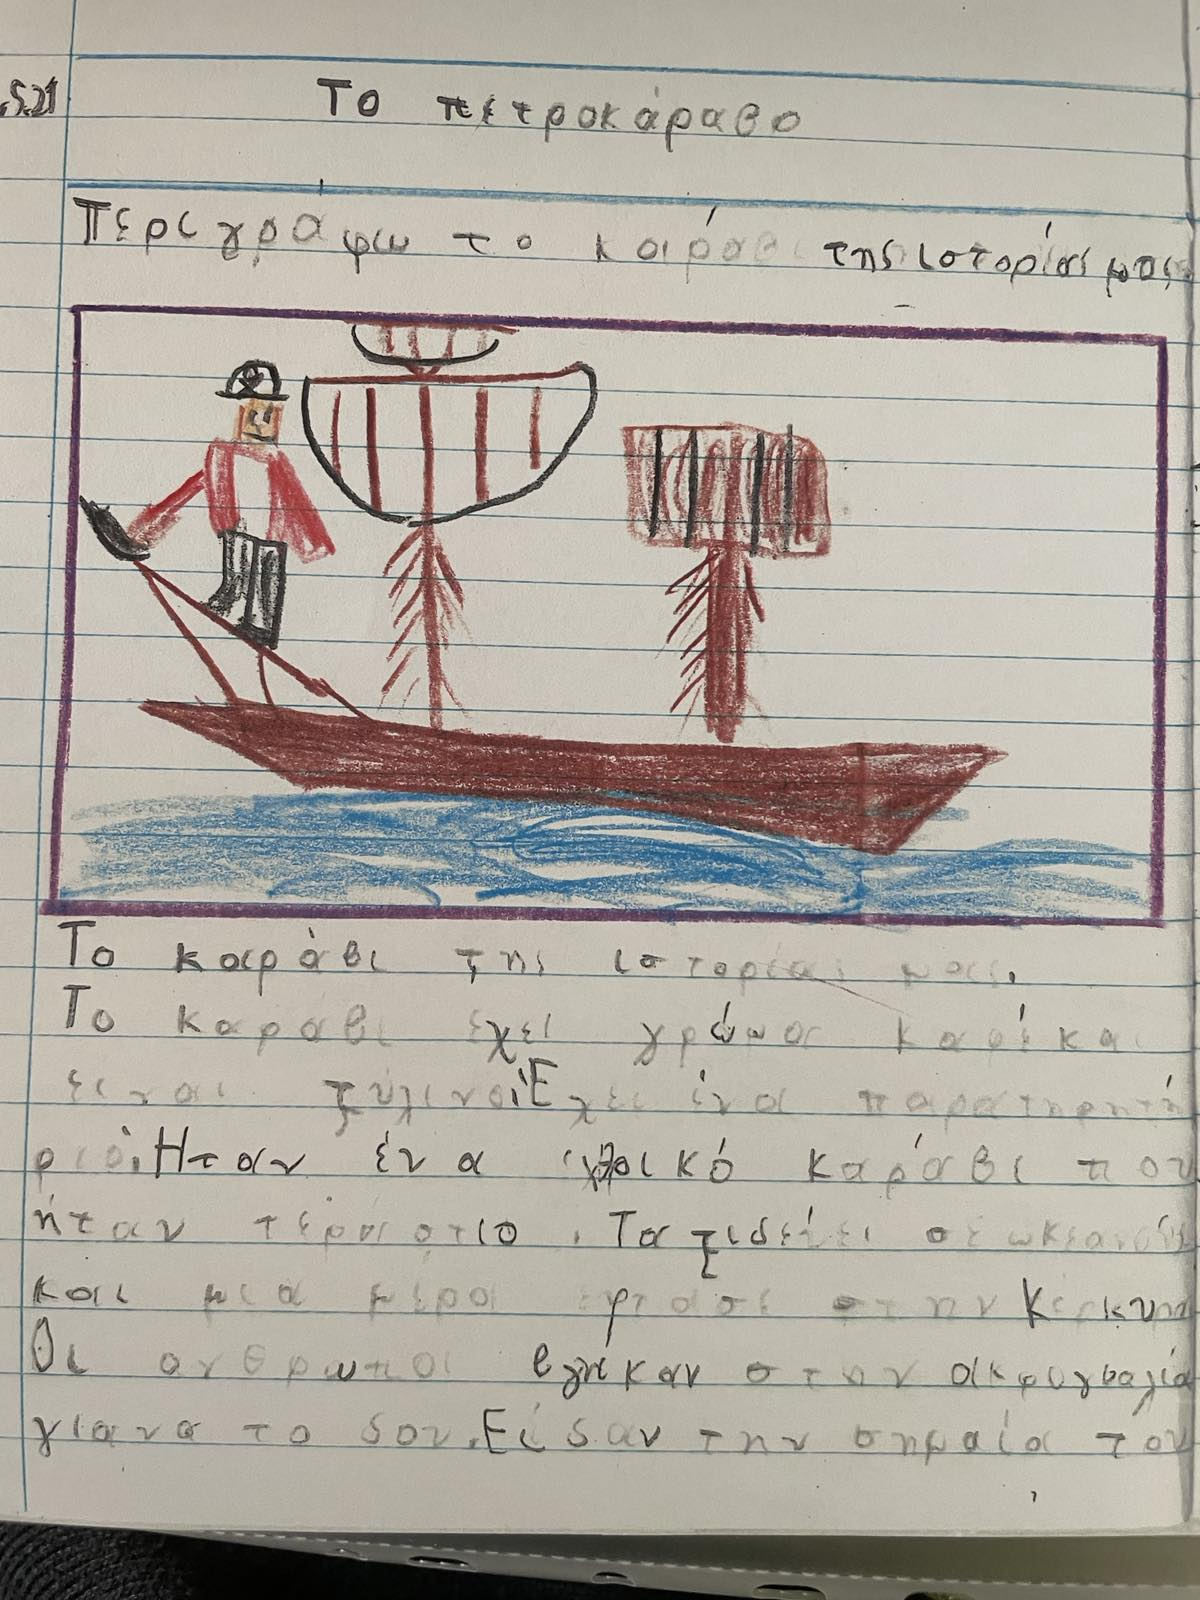 .5.21
Το πετροκάραβο
Περιγράφω το καράβι της ιστορίας μας
Το καράβι της ιστορίας μας.
Το καραβι έχει χρώμα καφέ και
ειναι ξύλινο. Εχει ένα παρατηρητή
ριο. Ηταν ένα καράβι που
ήταν τεράστιο. Ταξιδεύει σε ωκεανούς
και μια μερα εφτασε στην Κέρκυρα
Οι ανθρωποι βγήκαν στην ακρογιαλιά
για να το δουν. Είδαν την σημαία του